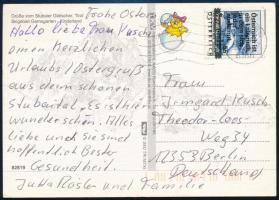 Grüße vom Stubaier Gletscher, Tirol
Bergstation Gamsgarten - Kinderland
Frohe Ostern
Hallo liebe Frau Rusch
einen herzlichen
Urlaubs/Ostergruß
aus dem schönen
Stubaital. Es ist hier
wunderschön. Alles
liebe und sie sind
hoffentlich bester
Gesundheit.
Jutta Rösler und Familie
82819
Österreich
Frau
Irmgard Rusch
Theodor-Loos-
Weg 34
12353 Berlin
Deutschland